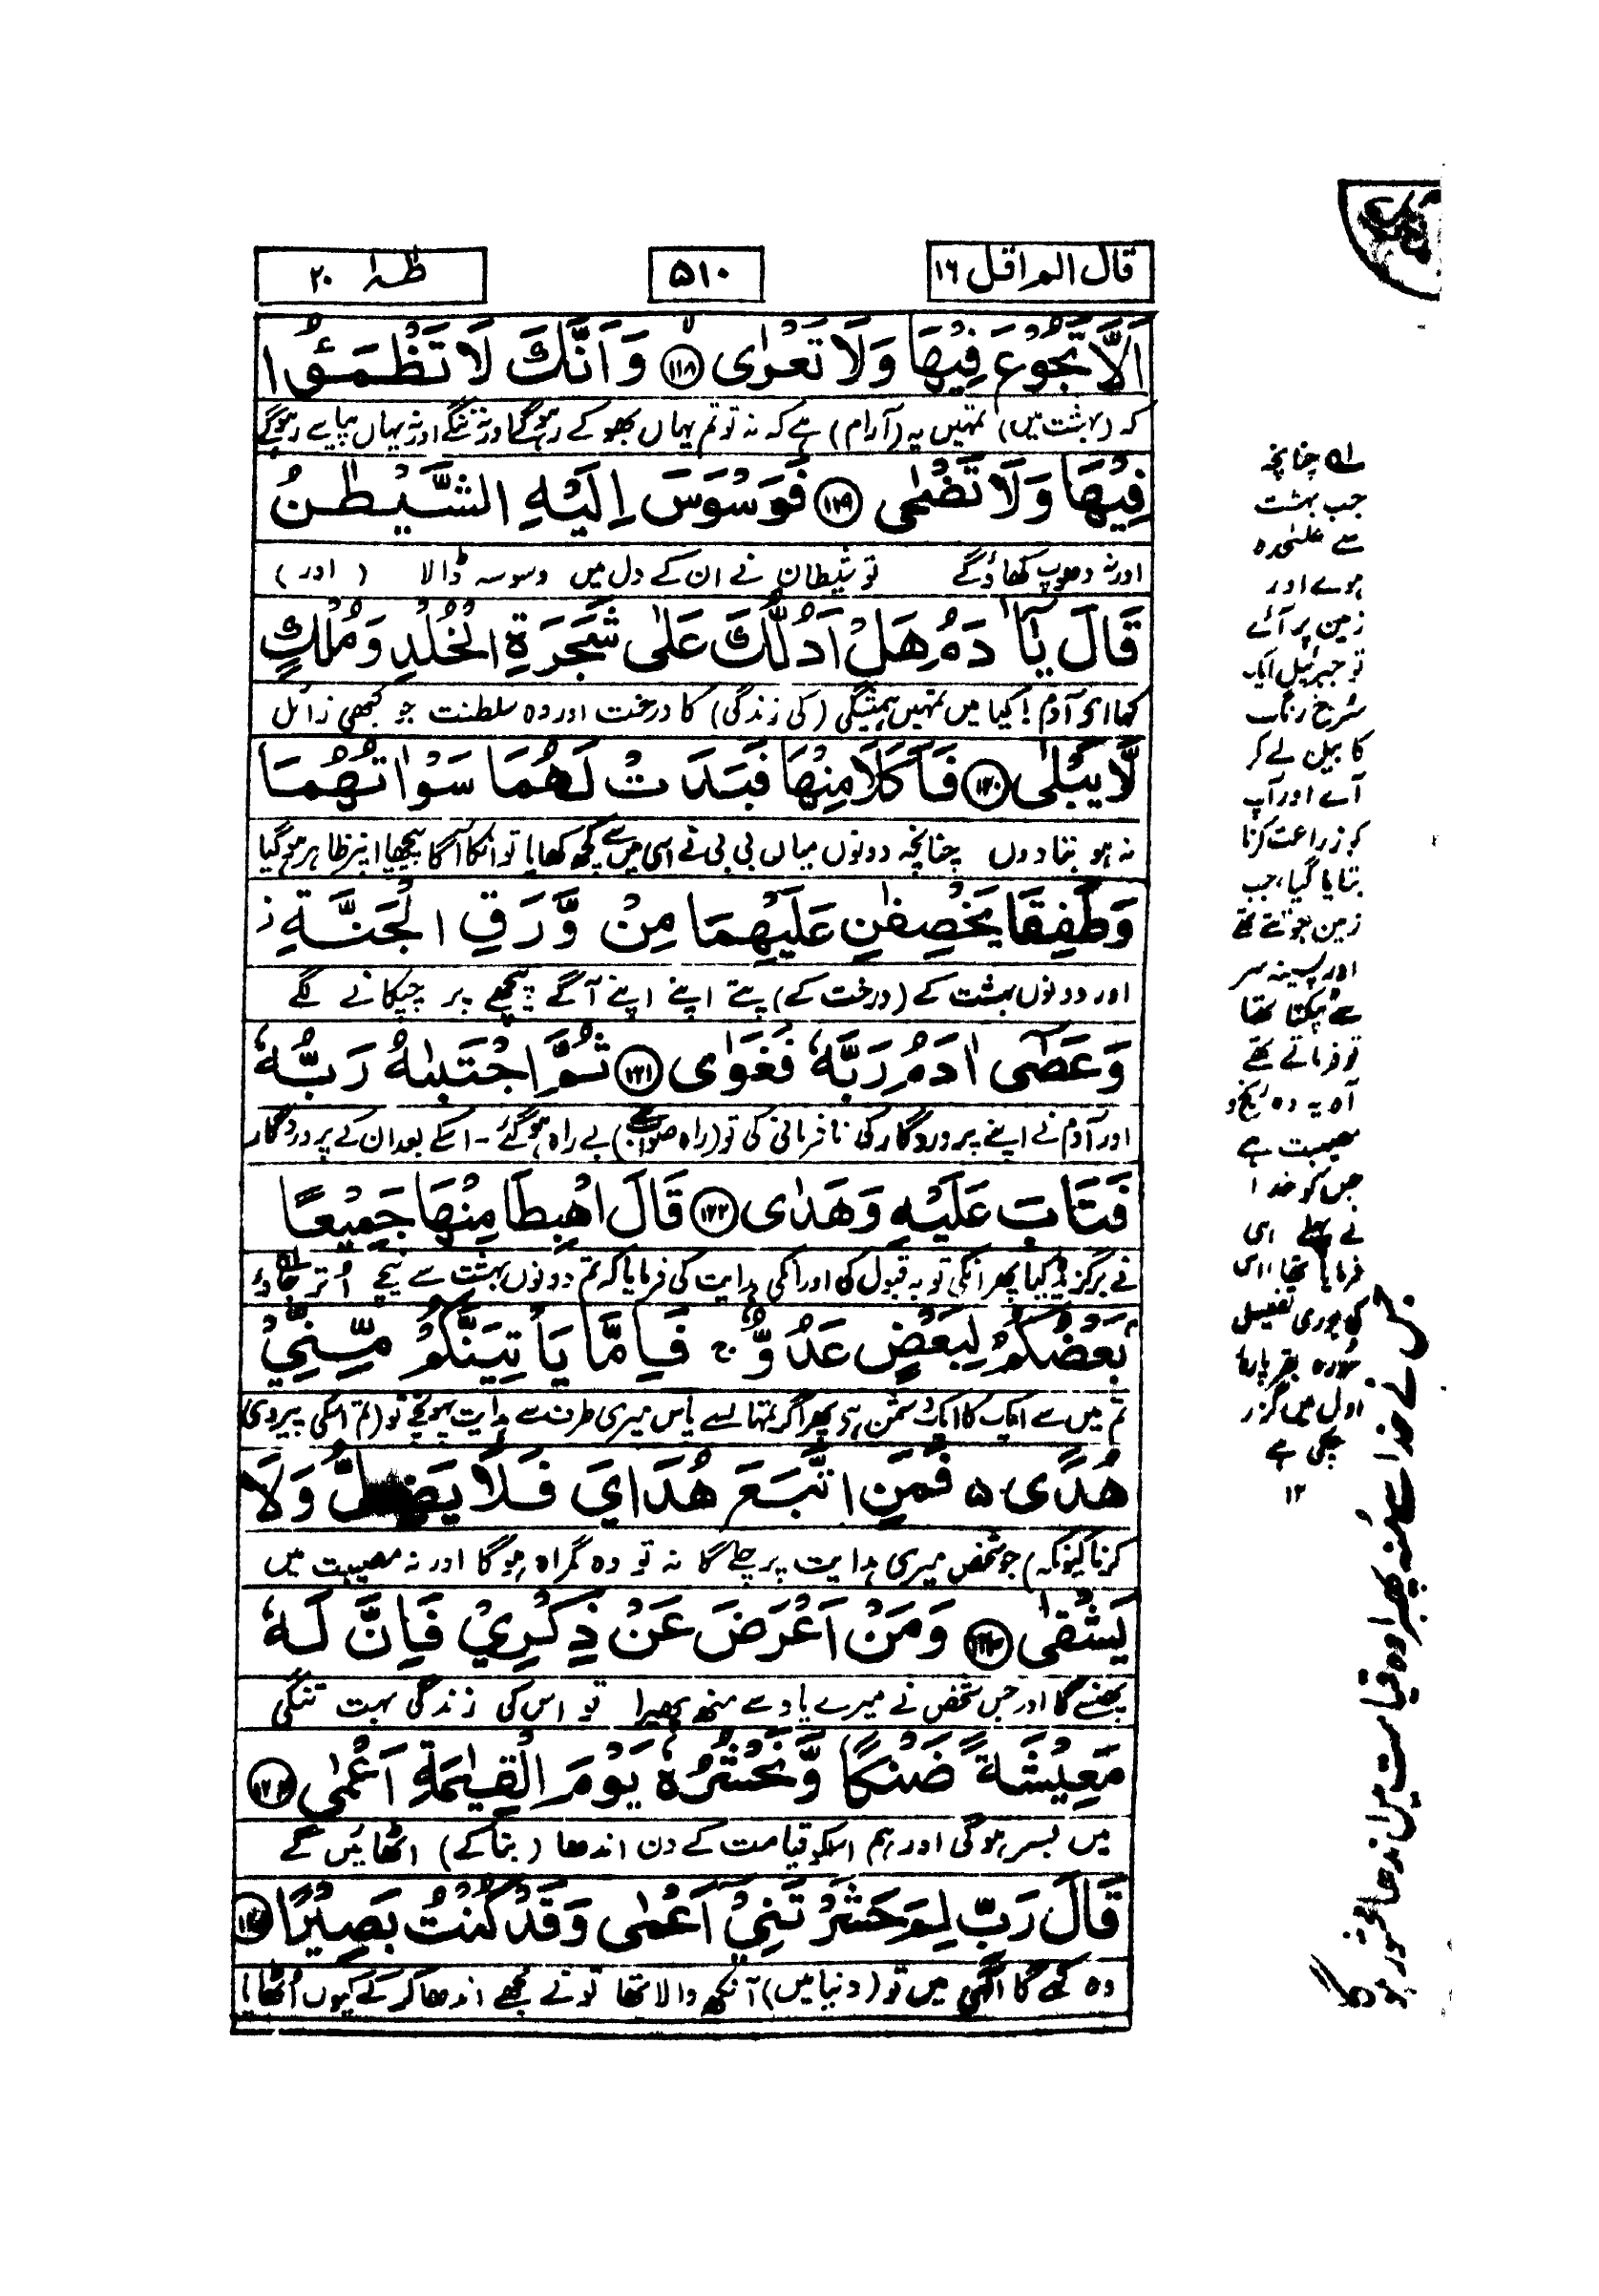 قال الم اقل ۱۶
۵۱۰
طٰہٰ ۲۰
اَلَّا تَجُوْعَ فِيْهَا وَلَا تَعْرٰى ۱۱۸ وَاَنَّكَ لَا تَظْمَؤُا
کہ (بہشت میں) تمہیں یہ (آرام) ہے کہ نہ تو تم یہاں بھوکے رہوگے اور نہ ننگے اور نہ یہاں پیاسے رہوگے
فِيْهَا وَلَا تَضْحٰى ۱۱۹ فَوَسْوَسَ اِلَيْهِ الشَّيْطٰنُ
اور نہ دھوپ کھاؤگے تو شیطان نے ان کے دل میں وسوسہ ڈالا (اور)
قَالَ يٰٓاٰدَمُ هَلْ اَدُلُّكَ عَلٰى شَجَرَةِ الْخُلْدِ وَمُلْكٍ
کہا اے آدم! کیا میں تمہیں ہمیشگی (کی زندگی) کا درخت اور وہ سلطنت جو کبھی زائل
لَّا يَبْلٰى ۱۲۰ فَاَكَلَا مِنْهَا فَبَدَتْ لَهُمَا سَوْاٰتُهُمَا
نہ ہو بتا دوں چنانچہ دونوں میاں بی بی نے اسی میں سے کچھ کھایا تو انکا آگا پیچھا انپر ظاہر ہوگیا
وَطَفِقَا يَخْصِفٰنِ عَلَيْهِمَا مِنْ وَّرَقِ الْجَنَّةِ ز
اور دونوں بہشت کے (درخت کے) پتے اپنے اپنے آگے پیچھے پر چپکانے لگے
وَعَصٰٓى اٰدَمُ رَبَّهٗ فَغَوٰى ۱۲۱ ثُمَّ اجْتَبٰىهُ رَبُّهٗ
اور آدم نے اپنے پروردگار کی نافرمانی کی تو (راہ صواب سے) بے راہ ہوگئے ۔ اسکے بعد ان کے پروردگار
فَتَابَ عَلَيْهِ وَهَدٰى ۱۲۲ قَالَ اهْبِطَا مِنْهَا جَمِيْعًا
نے برگزیدہ کیا پھر انکی توبہ قبول کی اور انکی ہدایت کی فرمایا کہ تم دونوں بہشت سے نیچے اُتر جاؤ
بَعْضُكُمْ لِبَعْضٍ عَدُوٌّ ج فَاِمَّا يَاْتِيَنَّكُمْ مِّنِّيْ
تم میں سے ایک کا ایک دشمن ہے پھر اگر تمہارے پاس میری طرف سے ہدایت پہونچے تو (تم اسکی پیروی
هُدًى ۵ فَمَنِ اتَّبَعَ هُدَايَ فَلَا يَضِلُّ وَلَا
کرنا کیونکہ) جو شخص میری ہدایت پر چلے گا نہ تو وہ گمراہ ہوگا اور نہ مصیبت میں
يَشْقٰى ۱۲۳ وَمَنْ اَعْرَضَ عَنْ ذِكْرِيْ فَاِنَّ لَهٗ
پھنسے گا اور جس شخص نے میرے یاد سے منھ پھیرا تو اس کی زندگی بہت تنگی
مَعِيْشَةً ضَنْكًا وَّنَحْشُرُهٗ يَوْمَ الْقِيٰمَةِ اَعْمٰى ۱۲۴
میں بسر ہوگی اور ہم اسکو قیامت کے دن اندھا (بنا کے) اٹھائیں گے
قَالَ رَبِّ لِمَ حَشَرْتَنِيْٓ اَعْمٰى وَقَدْ كُنْتُ بَصِيْرًا ۱۲۵
وہ کہے گا الٰہی میں تو (دنیا میں) آنکھ والا تھا تو نے مجھے اندھا کرکے کیوں اُٹھایا
لہ چنانچہ
جب بہشت
سے علٰیحدہ
ہوے اور
زمین پر آئے
تو جبرئیل ایک
سُرخ رنگ
کا بیل لے کر
آے اور آپ
کو زراعت کرنا
بتایا گیا، جب
زمین جوتتے تھے
اور پسینہ سر
سے ٹپکتا تھا
تو فرماتے تھے
آہ یہ وہ رنج و
مصیبت ہے
جس کو خدا
نے پہلے ہی
فرمایا تھا، اس
کی پوری تفصیل
سورہ بقر پارہ
اول میں گزر
چکی ہے
۱۲
جس نے خدا سے مُنہ پھیرا وہ قیامت میں اندھا محشور ہو
گا